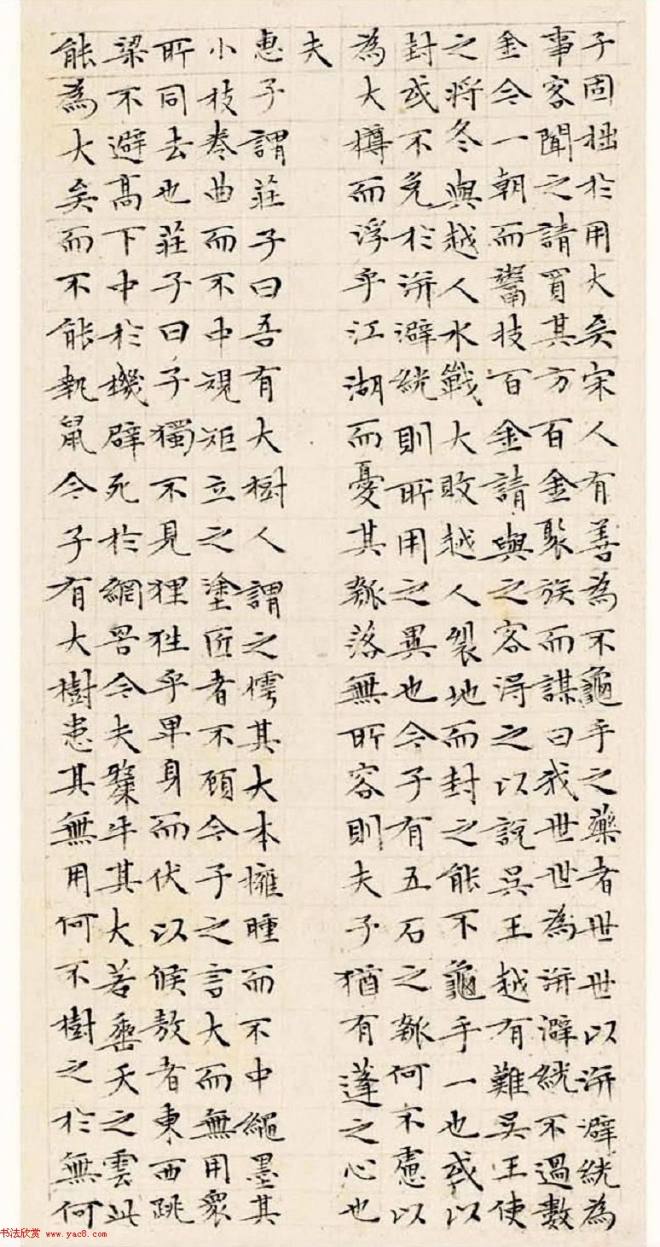 子固拙於用大矣宋人有善為不龜手之藥者世世以洴澼絖為
事客聞之請買其方百金聚族而謀曰我世世為洴澼絖不過數
金今一朝而鬻技百金請與之客得之以說吳王越有難吳王使
之將冬與越人水戰大敗越人裂地而封之能不龜手一也或以
封或不免於洴澼絖則所用之異也今子有五石之瓠何不慮以
為大樽而浮乎江湖而憂其瓠落無所容則夫子猶有蓬之心也
夫
惠子謂莊子曰吾有大樹人謂之樗其大本擁腫而不中繩墨其
小枝卷曲而不中規矩立之塗匠者不顧今子之言大而無用眾
所同去也莊子曰子獨不見狸狌乎卑身而伏以候敖者東西跳
梁不避高下中於機辟死於網罟今夫斄牛其大若垂天之雲此
能為大矣而不能執鼠今子有大樹患其無用何不樹之於無何
书法欣赏 www.yac8.com